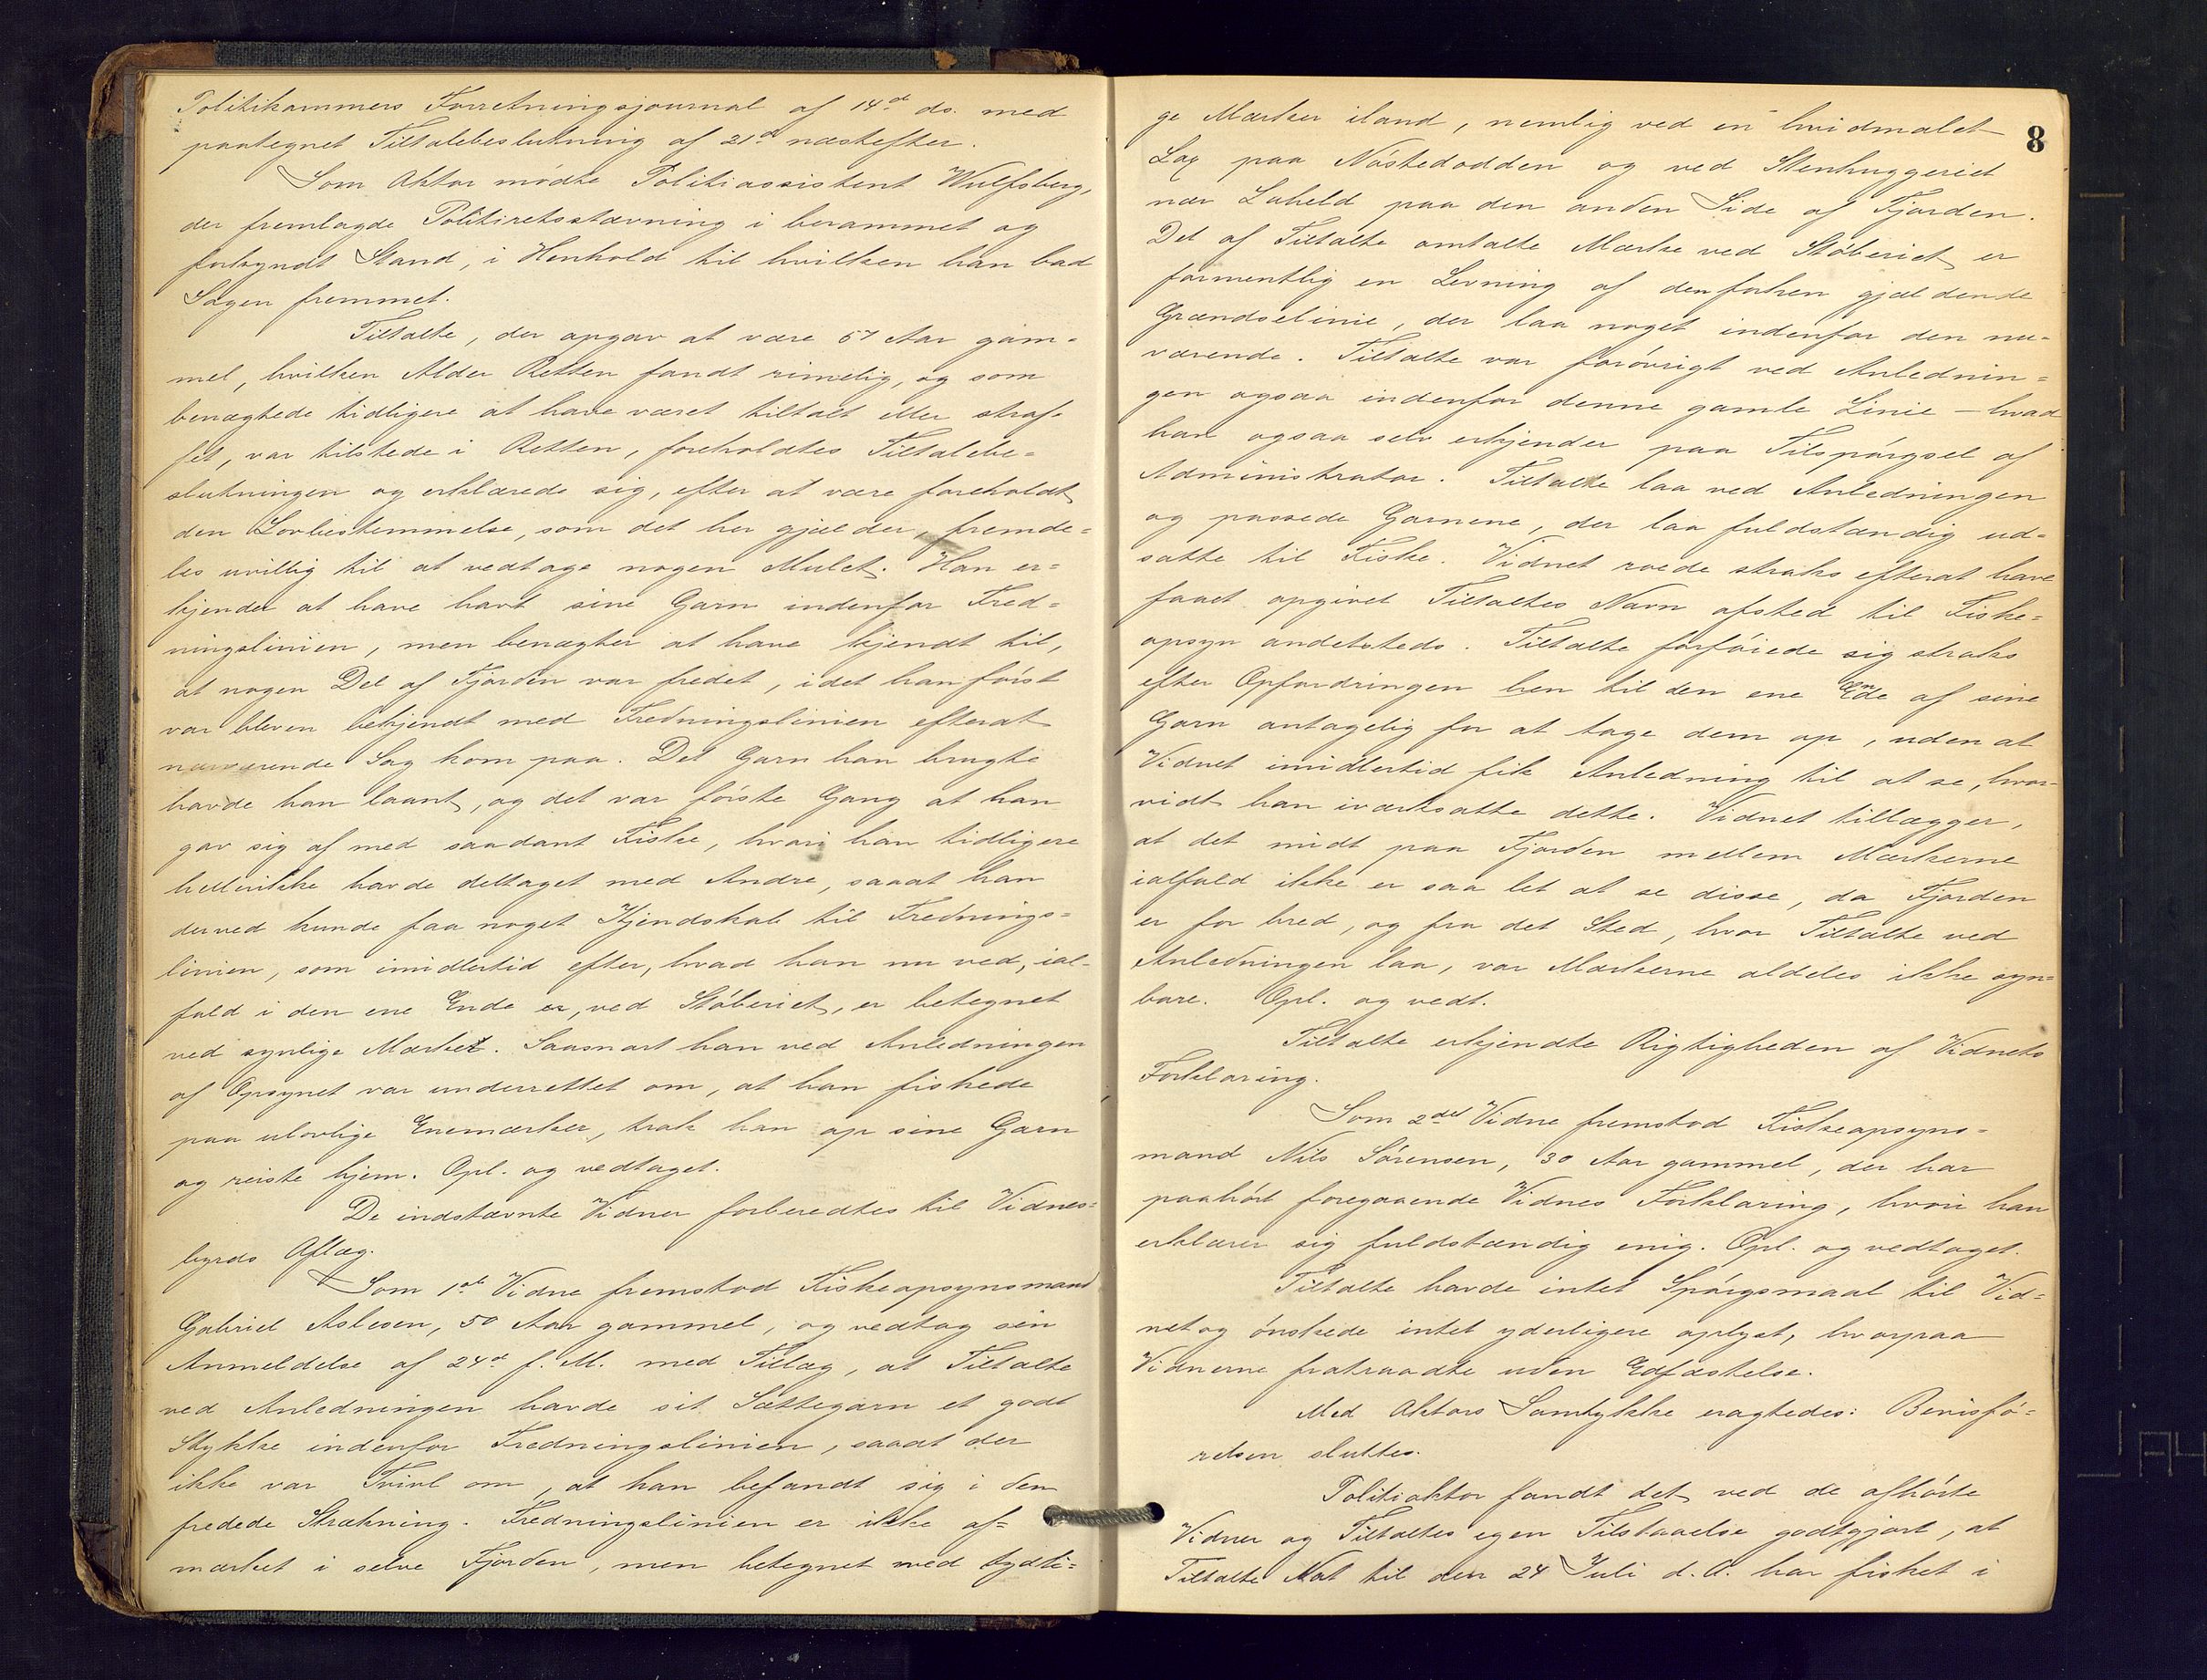 Politikammers Forretningsjournal af 14de ds. med
paategnet Tiltalebeslutning af 21de næstefter.
Som Aktor mødte Politiassistent Wulfsberg,
der fremlagde Politiretsstævning i berammet og
forkyndt Stand, i Henhold til hvilken han bad
Sagen fremmet.
Tiltalte, der opgav at være 57 Aar gam-
mel, hvilken Alder Retten fandt rimelig, og som
benægtede tidligere at have været tiltalt eller straf-
fet, var tilstede i Retten, foreholdtes Tiltalebe-
slutningen og erklærede sig, efter at være foreholdt
den Lovbestemmelse, som det her gjælder, fremde-
les uvillig til at vedtage nogen Mulct. Han er-
kjender at have havt sine Garn indenfor Fred-
ningslinien, men benægter at have kjendt til,
at nogen Del af Fjorden var fredet, idet han først
var bleven bekjendt med Fredningslinien efterat
nærværende Sag kom paa. Det Garn han brugte
havde han laant, og det var første Gang at han
gav sig af med saadant Fiske, hvori han tidligere
hellerikke havde deltaget med Andre, saaat han
derved kunde faa noget Kjendskab til Frednings-
linien, som imidlertid efter, hvad han nu ved, ial-
fald i den ene Ende er, ved Støberiet, er betegnet
ved synlige Mærker. Saasnart han ved Anledningen
af Opsynet var underrettet om, at han fiskede
paa ulovlige Enemærker, trak han op sine Garn
og reiste hjem. Opl. og vedtaget.
De indstævnte Vidner forberedtes til Vidnes-
byrds Aflæg.
Som 1ste Vidne fremstod Fiskeopsynsmand
Gabriel Aslesen, 50 Aar gammel, og vedtog sin
Anmeldelse af 24de f. M. med Tillæg, at Tiltalte
ved Anledningen havde sit Sættegarn et godt
Stykke indenfor Fredningslinien, saaat der
ikke var Tvivl om, at han befandt sig i den
fredede Strækning. Fredningslinien er ikke af-
mærket i selve Fjorden, men betegnet med tydli-
8
ge Mærker iland, nemlig ved en hvidmalet
Lax paa Nøstedodden og ved Stenhuggeriet
nær Laheld paa den anden Side af Fjorden.
Det af Tiltalte omtalte Mærke ved Støberiet er
formentlig en Levning af den forhen gjældende
Grændselinie, der laa noget indenfor den nu-
værende. Tiltalte var forøvrigt ved Anlednin-
gen ogsaa indenfor denne gamle Linie – hvad
han ogsaa selv erkjender paa Tilspørgsel af
Administrator. Tiltalte laa ved Anledningen
og passede Garnene, der laa fuldstændig ud-
satte til Fiske. Vidnet roede straks efterat have
faaet opgivet Tiltaltes Navn afsted til Fiske-
opsyn andetsteds. Tiltalte forføiede sig straks
efter Opfordringen hen til den ene Ende af sine
Garn antagelig for at tage dem op, uden at
Vidnet imidlertid fik Anledning til at se, hvor-
vidt han iværksatte dette. Vidnet tillægger,
at det midt paa Fjorden mellem Mærkerne
ialfald ikke er saa let at se disse, da Fjorden
er for bred, og fra det Sted, hvor Tiltalte ved
Anledningen laa, var Mærkerne aldeles ikke syn-
bare. Opl. og vedt.
Tiltalte erkjendte Rigtigheden af Vidnets
Forklaring.
Som 2det Vidne fremstod Fiskeopsyns-
mand Nils Sørensen, 30 Aar gammel, der har
paahørt foregaaende Vidnes Forklaring, hvori han
erklærer sig fuldstændig enig. Opl. og vedtaget.
Tiltalte havde intet Spørgsmaal til Vid-
net og ønskede intet yderligere oplyst, hvorpaa
Vidnerne fratraadte uden Edfæstelse.
Med Aktors Samtykke eragtedes: Bevisfø-
relsen sluttes.
Politiaktor fandt det ved de afhørte
Vidner og Tiltaltes egen Tilstaaelse godtgjort, at
Tiltalte Nat til den 24 Juli d. A. har fisket i